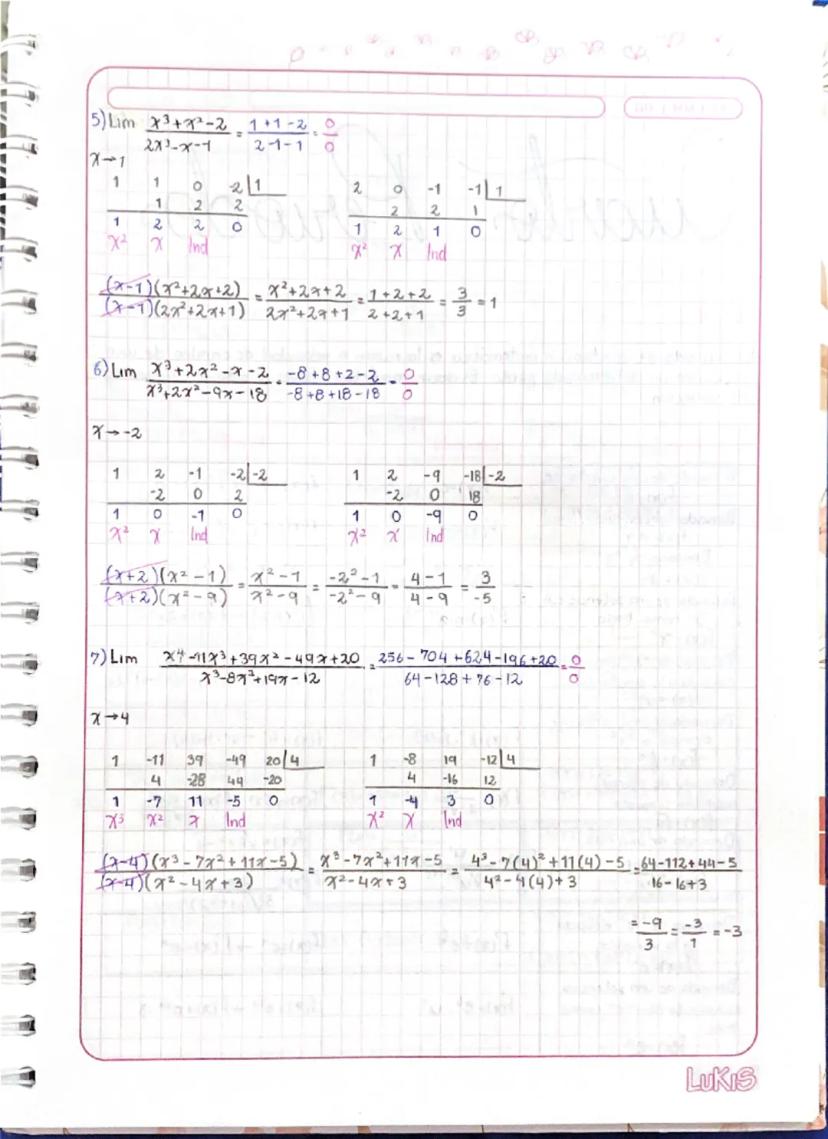 5) Lim x³+x²-2 / 2x³-x-1 = 1+1-2 / 2-1-1 = 0/0
x→1
1 1 0 -2 |1
1 2 2
1 2 2 0
x² x Ind
2 0 -1 -1 |1
2 2 1
1 2 1 0
x² x Ind
(x-1)(x²+2x+2) / (x-1)(2x²+2x+1) = x²+2x+2 / 2x²+2x+1 = 1+2+2 / 2+2+1 = 3/3 = 1
6) Lim x³+2x²-x-2 / x³+2x²-9x-18 = -8+8+2-2 / -8+8+18-18 = 0/0
x→-2
1 2 -1 -2 |-2
-2 0 2
1 0 -1 0
x² x Ind
1 2 -9 -18 |-2
-2 0 18
1 0 -9 0
x² x Ind
(x+2)(x²-1) / (x+2)(x²-9) = x²-1 / x²-9 = -2²-1 / -2²-9 = 4-1 / 4-9 = 3 / -5
7) Lim x4-11x³+39x²-49x+20 / x³-8x²+19x-12 = 256-704+624-196+20 / 64-128+76-12 = 0/0
x→4
1 -11 39 -49 20 |4
4 -28 44 -20
1 -7 11 -5 0
x³ x² x Ind
1 -8 19 -12 |4
4 -16 12
1 -4 3 0
x² x Ind
(x-4)(x³-7x²+11x-5) / (x-4)(x²-4x+3) = x³-7x²+11x-5 / x²-4x+3 = 4³-7(4)²+11(4)-5 / 4²-4(4)+3 = 64-112+44-5 / 16-16+3
= -9/3 = -3/1 = -3
LUKIS